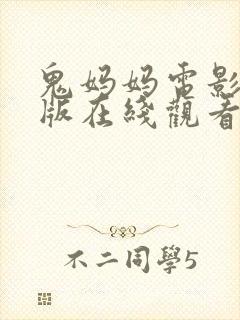 鬼妈妈电影
版在綫觀看
不二同學5